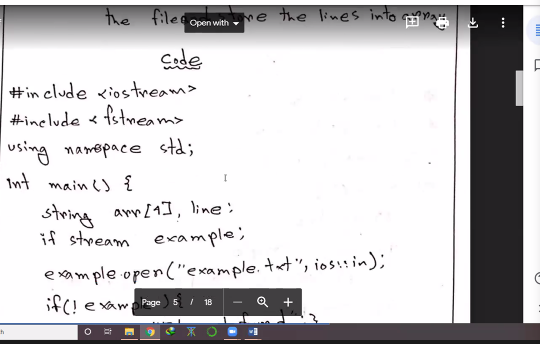 the file and store the lines into array
Open with
Code
#include <iostream>
#include <fstream>
using namespace std;
int main() {
string arr[4], line;
if stream example;
example.open("example.txt", ios::in);
if(! example) {
Page 5 / 18